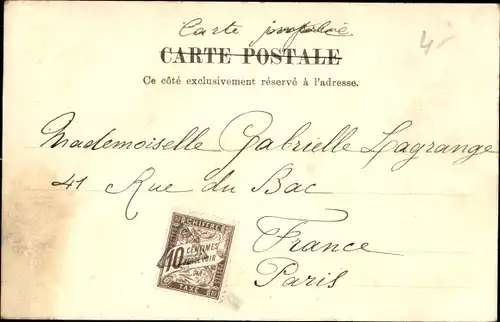 Carte
4-
CARTE POSTALE
Ce côté exclusivement réservé à l'adresse.
Mademoiselle Gabrielle Lagrange
41 Rue du Bac
France
Paris
CHIFFRE
10 CENTIMES
À PERCEVOIR
TAXE